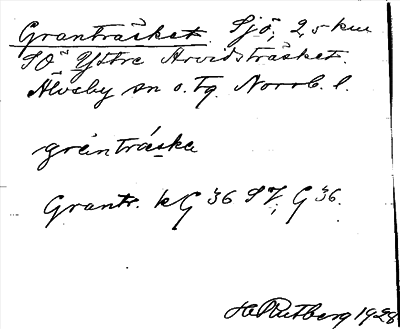 Granträsket. Sjö, 2,5 km
SO Yttre Arvidsträsket.
Älvsby sn o. tg. Norrb. l.
gräntráska
Grantr. kG 36 SV, G 36.
H. Rutberg 1928